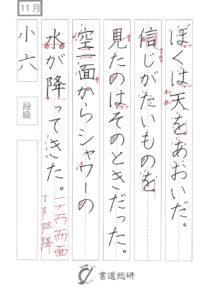 11月
ぼくは天をあおいだ。
信じがたいものを
見たのはそのときだった。
空一面からシャワーの
水が降ってきた。
小六
段級
書道総研